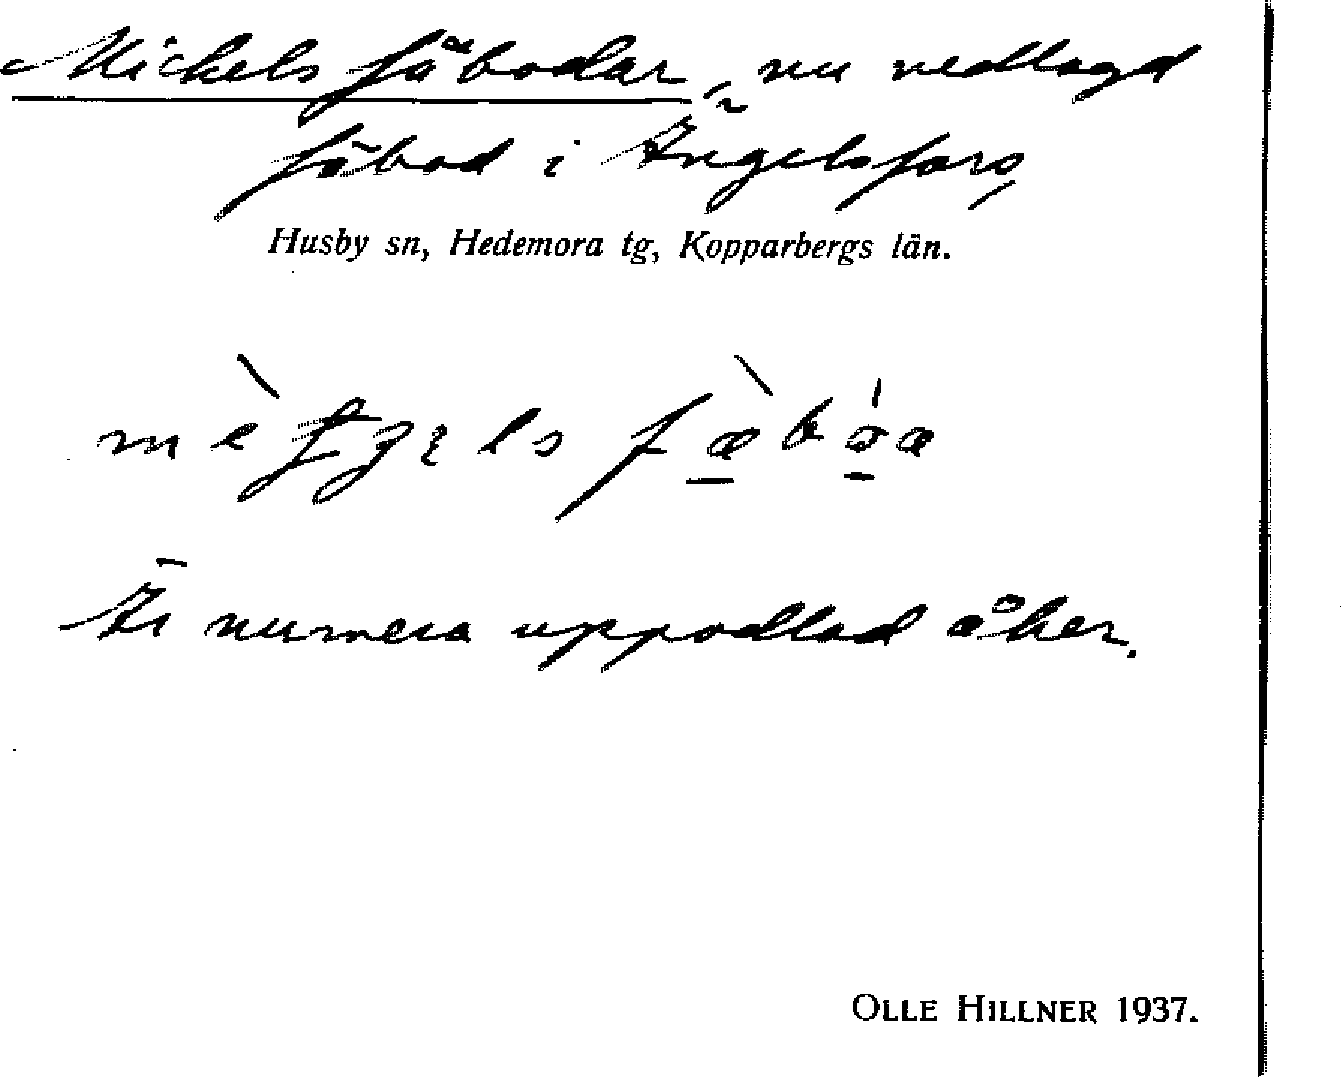 Mickels fäbodar, nu nedlagd
fäbod i Ängelsfors,
Husby sn, Hedemora tg, Kopparbergs län.
Är numera uppodlad åker.
OLLE HILLNER 1937.